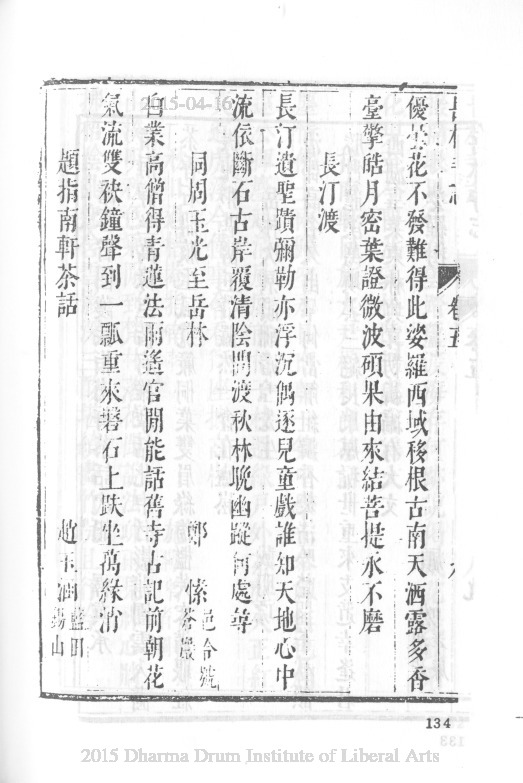 卷五
優曇花不發難得此娑羅西域移根古南天洒露多香
臺擎皓月密葉證微波碩果由來結菩提永不磨
長汀渡
長汀遺聖蹟彌勒亦浮沉偶逐兒童戲誰知天地心中
流依斷石古岸覆清陰問渡秋林晚幽蹤何處尋
同周玉光至岳林 鄭愫 邑令號蒼巖
白業高僧得青蓮法雨遙官閒能話舊寺古記前朝花
氣流雙袂鐘聲到一瓢重來磐石上趺坐萬緣消
題指南軒茶話 趙玉 藍田 山
134
2015-04-16
2015 Dharma Drum Institute of Liberal Arts